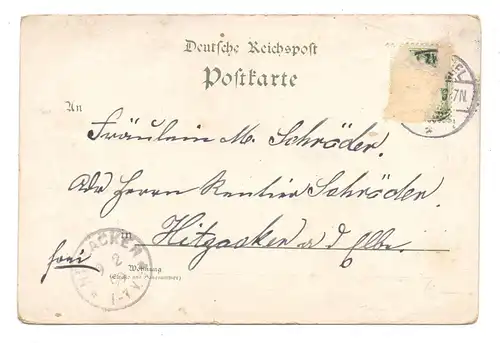 Deutsche Reichspost
Postkarte
An
Fräulein M. Schröder.
Adr Herrn Rentier Schröder
in Hitzacker a d Elbe.
frei
Wohnung
(Straße und Hausnummer)
ACKER
2
7N